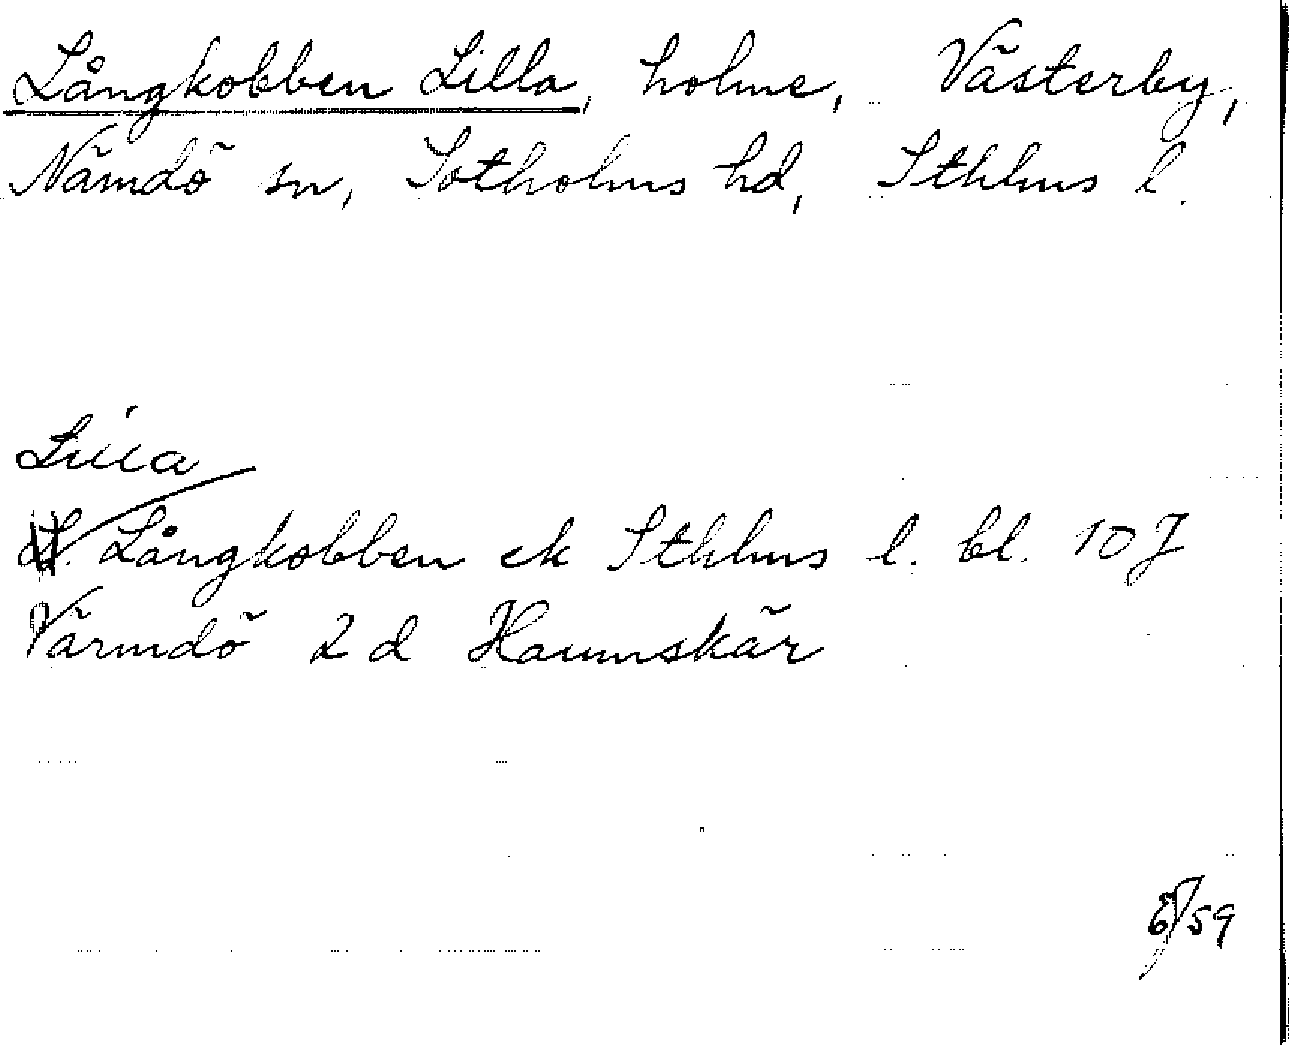 Långkobben Lilla, holme, Västerby,
Nämdö sn, Sotholms hd, Sthlms l.
Lilla
L. Långkobben ek Sthlms l. bl. 10 J
Värmdö 2 d Hamnskär
/59